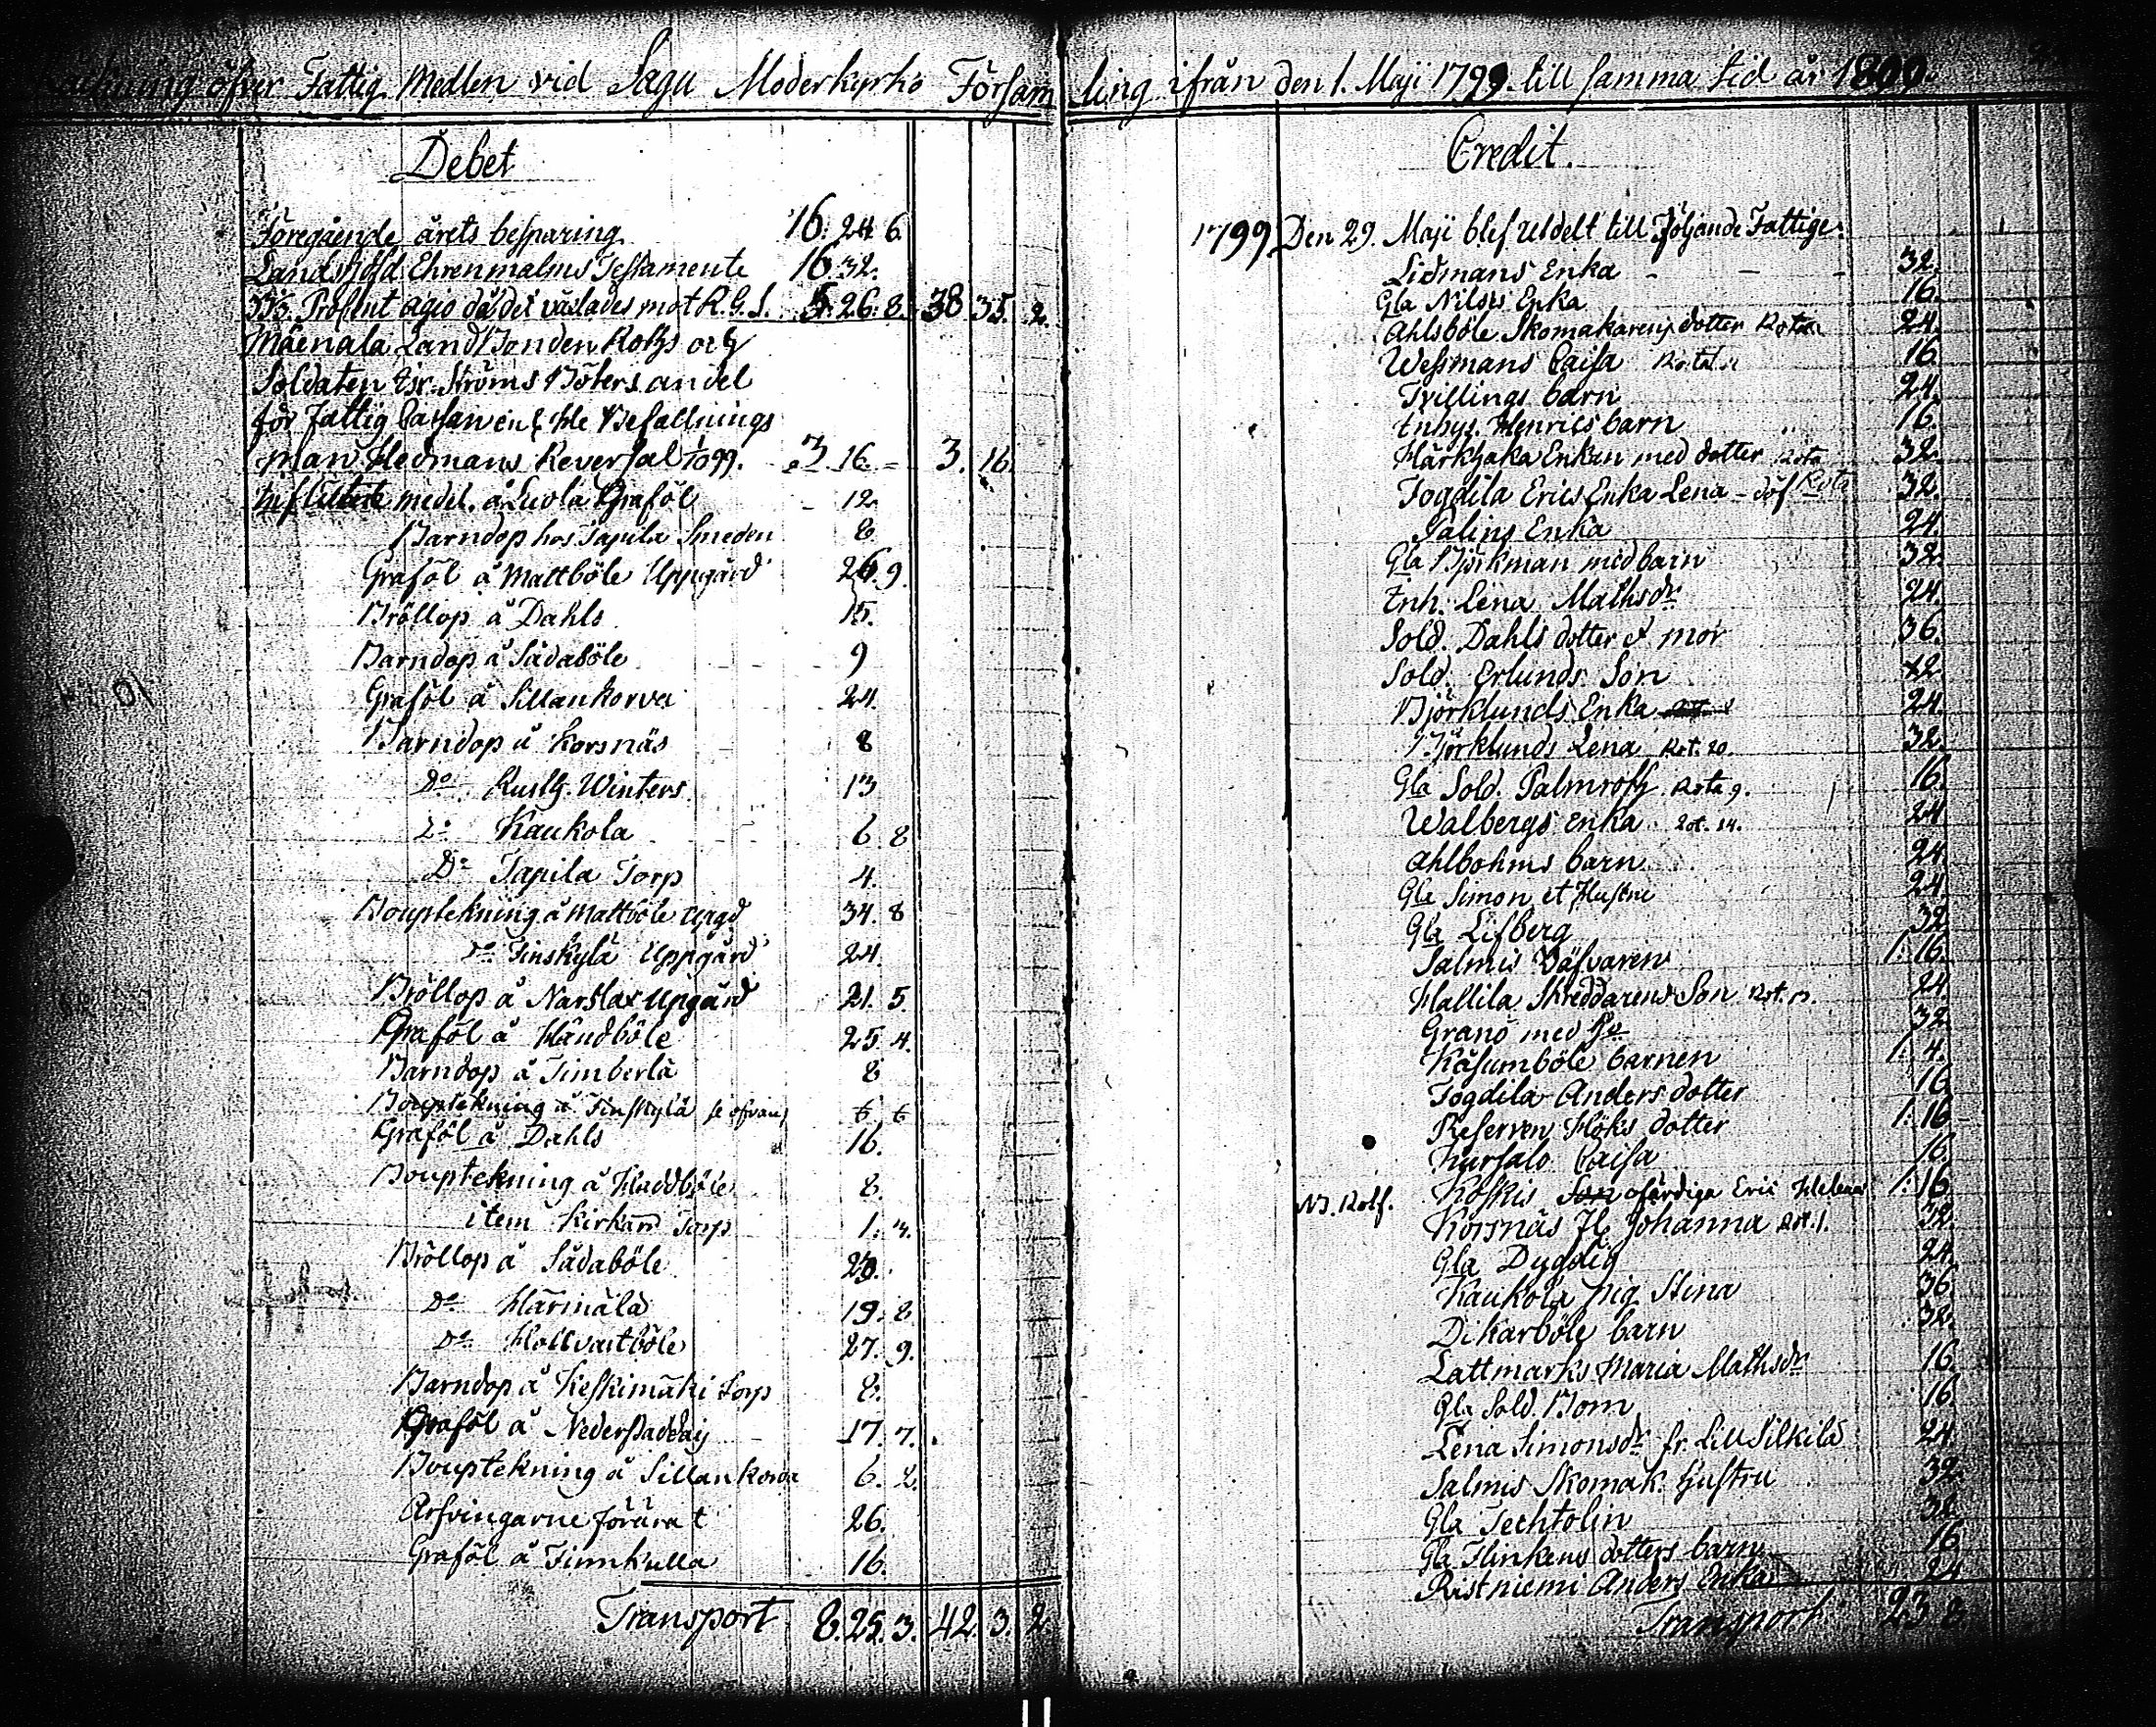 Räckning öfver Fattig Medlen vid Sagu Moderkyrko Församling ifrån den 1. Maji 1799. till samma tid år 1800.
Debet
Föregående årets besparing 16. 24. 6.
Landshöfd. Ehrenmalms Testamente 16. 32.
33⅓ Procent agio då det växlades mot R.G.S. 5. 26. 8. 38 35. 2.
Mäenala Land Bonden Rothz och
Soldaten Ström s Böters andel
för Fattig Cassan enl. Hr Befallnings
man Hedmans Reversal 99. 3 16. 3. 16.
medel. å Graföl 12
Barndop hos Tapila Smeden 8
Graföl å Mattböle Uppgård 26. 9.
Bröllop å Dahls 15.
Barndop å Sådaböle 9
Graföl å Sillankorva 24.
Barndop å Korsnäs 8
Do Rusth. Winters 13
Do Kaukola 6. 8
Do Tapila Torp 4.
Bouptekning å Mattböle Upgd 34. 8
Do Finskylä Uppgård 24.
Bröllop å Narslax Upgård 21. 5.
Graföl å Händböle 25. 4.
Barndop å Timberla 8
Bouptekning å Finskylä se ofvan 6 6
Graföl å Dahls 16.
Bouptekning å Haddböle 8.
item Torp 1.
Bröllop å Sådaböle 20.
Do Härmälä 19. 8
Do Hollvastböle 27. 9.
Barndop å Keskimäki Torp 8.
Graföl å 17. 7.
Bouptekning å Sillankorva 6. 2.
Arfvingarne förärat 26.
Graföl å Finnkulla 16.
Transport 8. 25. 3. 42. 3. 2
Credit.
1799 Den 29. Maji blef utdelt till Följande Fattige.
Lidmans Enka 32.
Gla Nilses Enka 16.
Ahlsböle Skomakarens dotter Rota 24.
Wessmans Caisa 16
Tvillings barn 24.
Enhys. Henrics barn 16.
Härkhaka Enkan med dotter Rota 32.
Togdila Erics Enka Lena - döf Rote 32.
Palins Enka 24.
Gla Björkman med barn 32.
Enh. Lena Mathsdr 24.
Sold. Dahls dotter et mor 36.
Sold. Erlunds Son 42
Björklunds Enka 24.
Björklunds Lena Rot. 20. 32.
Gla Sold. Palmroth Rota 9. 16.
Walbergs Enka Rot. 14. 24
Ahlbohms barn 24
Gla Simon et Hustru 24
Gla Lifberg 32
Salmis Väfvaren 1. 16.
Hallila Skreddarens Son 24
Granö med 32
Kåsumböle barnen 1. 4.
Togdila Anders dotter 16
Reserven Höks dotter 1. 16
Kursalo Caisa 16.
Koskis ofärdiga Eric 1. 16
NB. Rolf. Korsnäs Johanna Rot. 1. 32
Gla Dygdig 24
Kaukola pig. Stina 36.
Dikarböle barn 32.
Lattmarks Maria Mathsdr 16
Gla Sold. Bom 16.
Lena Simonsdr fr. Lill Silkilä 24
Salmis Skomak. Hustru 32
Gla Techtolin 32
Gla Flinkens dotters barn 16
Ristniemi Anders Enka 24
Transport 23 8.